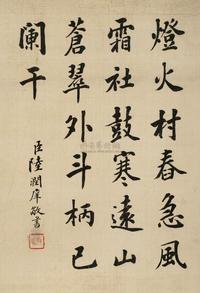 燈火村舂急風
霜社鼓寒遠山
蒼翠外斗柄已
闌干
臣陸潤庠敬書